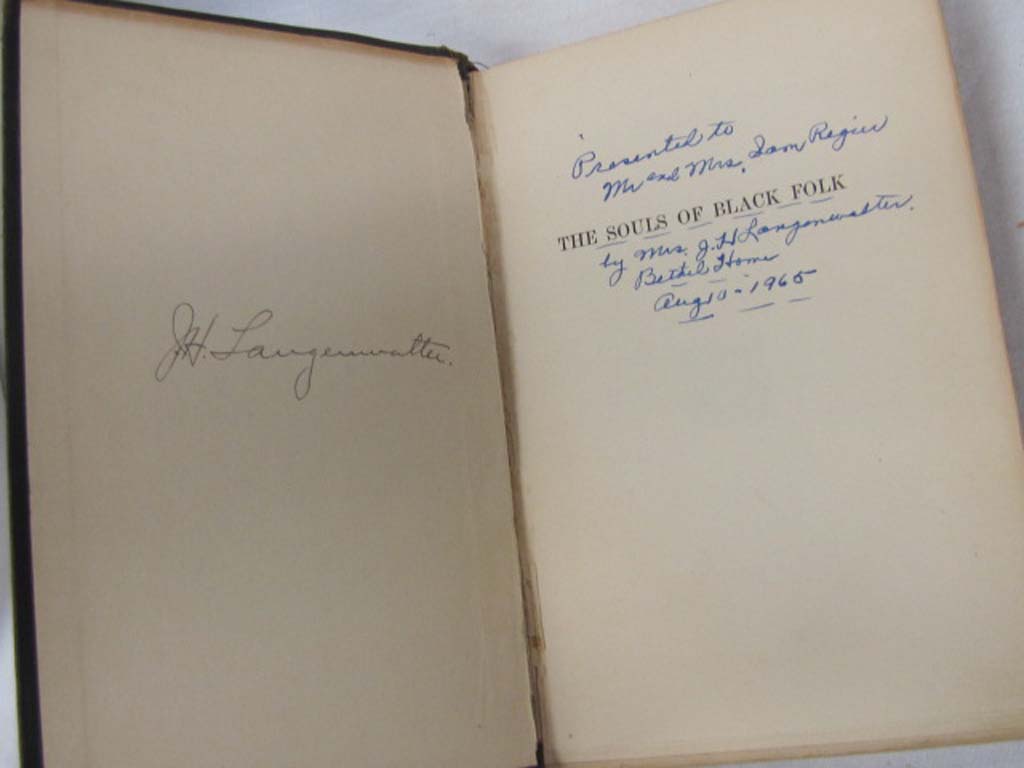 J.H. Langenwalter.
Presented to
Mr and Mrs. Sam Regier
THE SOULS OF BLACK FOLK
by Mrs. J.H Langenwalter.
Bethel Home
Aug 10 - 1965